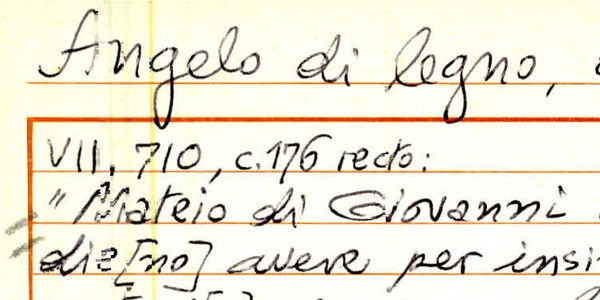 Angelo di legno,
VII, 710, c. 176 recto:
"Mateio di Giovanni
die[no] avere per insi